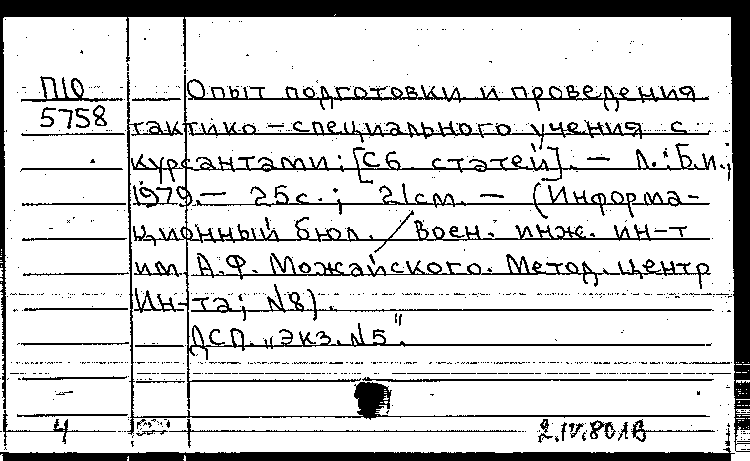 П10
5758
Опыт подготовки и проведения
тактико-специального учения с
курсантами: [Сб. статей]. – Л.: Б.и.,
1979. – 25с.; 21см. – (Информа-
ционный бюл. / Воен. инж. ин-т
им. А.Ф. Можайского. Метод. центр
Ин-та; N8).
ДСП. „Экз. N5".
4
2.IV.80